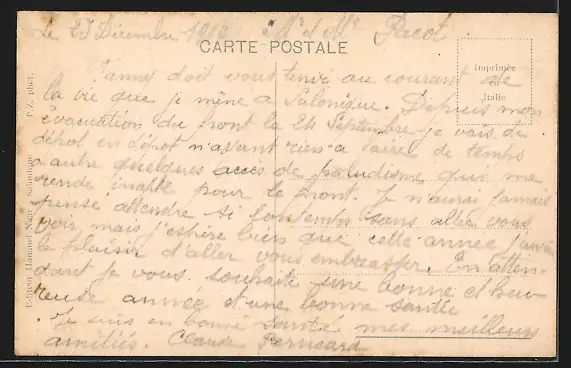 le 25 Décembre 191 Mr et Me Pacot
CARTE POSTALE
Imprimée
en
Italie
Fanny doit vous tenir au courant de
la vie que je mène a Salonique. Depuis mon
evacuation du front la 24 Septembre je vais de
dépot en dépot n'ayant rien a faire de temps
a autre quelques accès de paludisme qui me
rende inapte pour le front. Je n'aurai jamais
pensé attendre si lontemps sans aller vous
voir, mais j'espère bien que cette année j'aurai
le plaisir d'aller vous embrasser. En atten-
dant je vous souhaite une bonne et heu-
reuse année et une bonne santé
Je suis en bonne santé mes meilleurs
amitiés. Claude Perricard
Editeur Hananel Naar Salonique P.Z. phot.